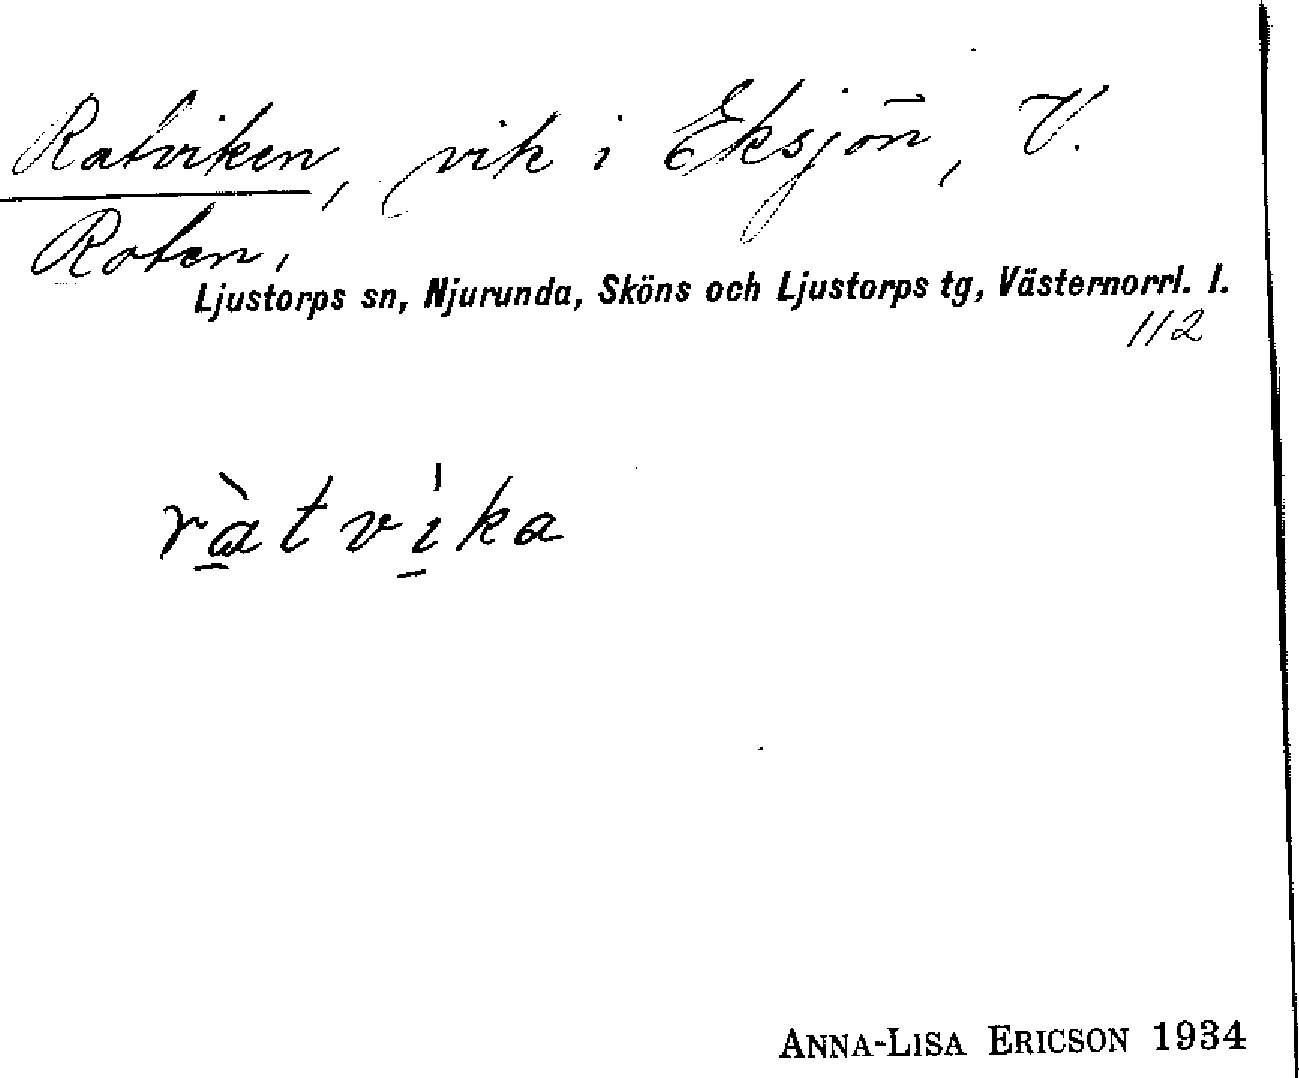 Ratviken, vik i Eksjön, V.
Roten,
Ljustorps sn, Njurunda, Sköns och Ljustorps tg, Västernorrl. l.
112
ràtvika
ANNA-LISA ERICSON 1934